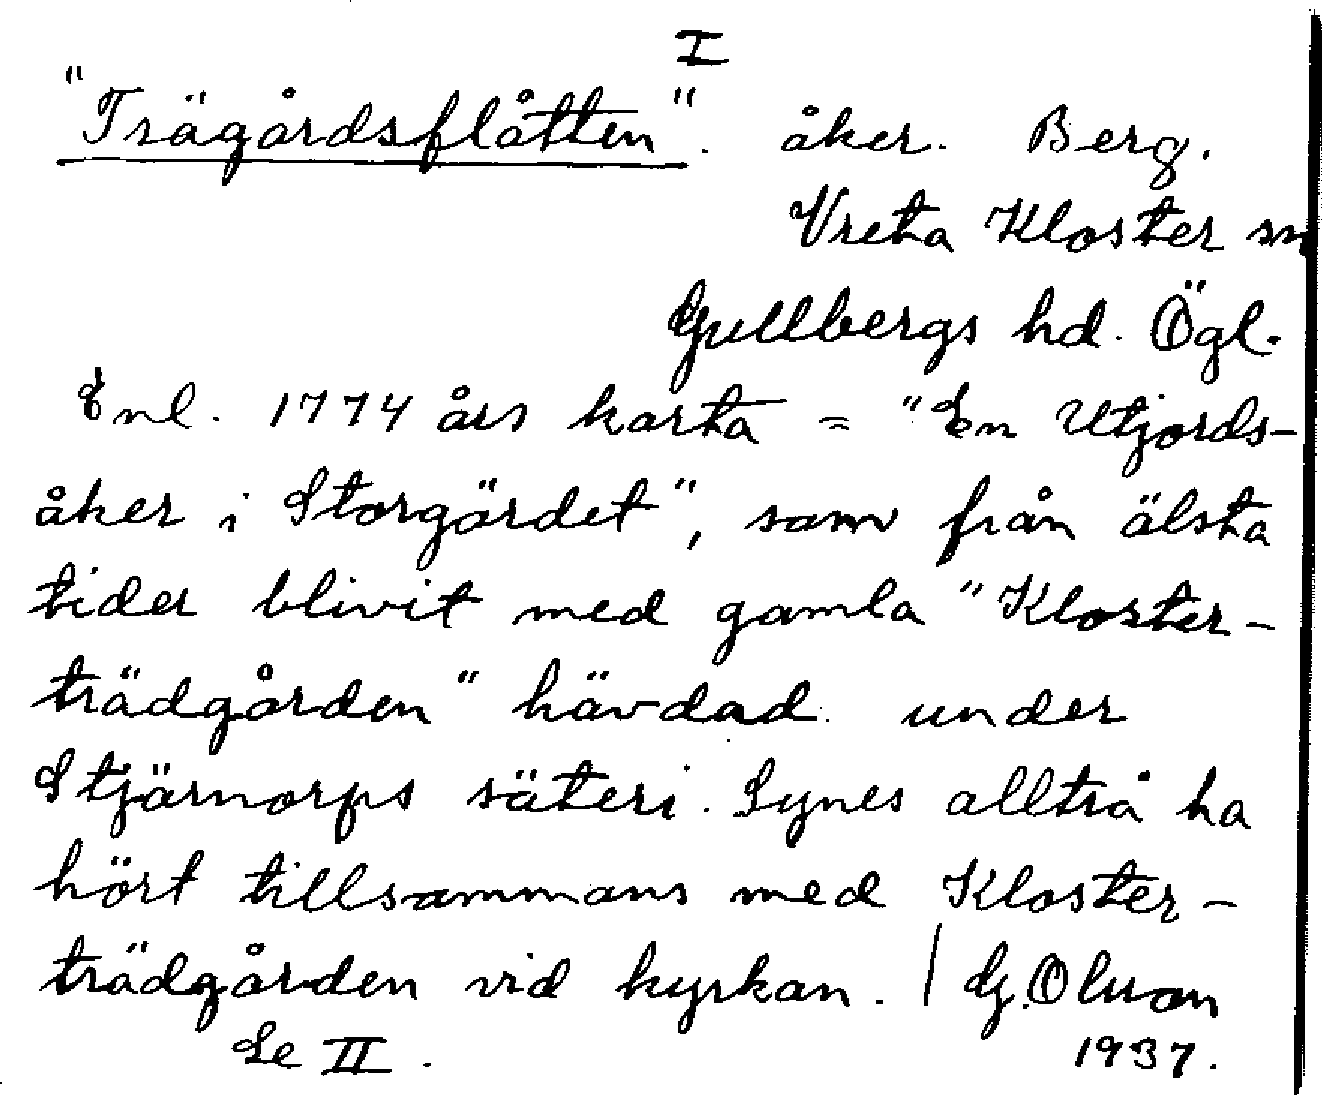 I
"Trägårdsflåtten". åker. Berg.
Vreta Kloster sn
Gullbergs hd. Ögl.
Enl. 1774 års karta = "En Utjords-
åker i Storgärdet", som från älsta
tider blivit med gamla "Kloster-
trädgården" hävdad under
Stjärnorps säteri. Synes alltså ha
hört tillsammans med Kloster-
trädgården vid kyrkan. | G. Olsson
Se II. 1937.